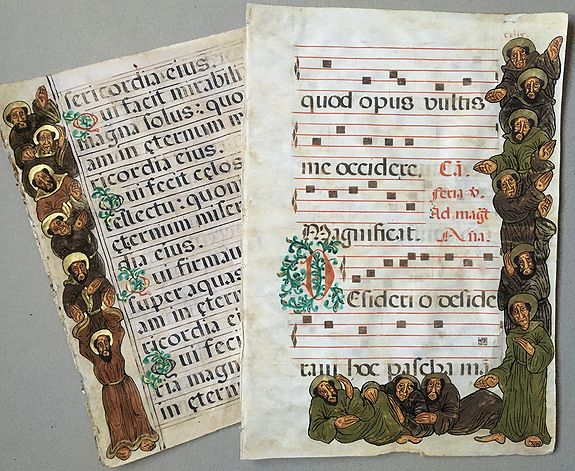 sericordia eius.
Qui facit mirabili
magna solus: quo
am in eternum m
ricordia eius.
Qui fecit celos
tellectu: quoni
eternum miser
dia eius.
Qui firmau
uper aquas
am in eter
ricordia ei
Qui feci
ria magn
in etern
quod opus vultis
me occidere.
feria .v.
Ad magt
Magnificat.
Desiderio deside
raui hoc pascha mā